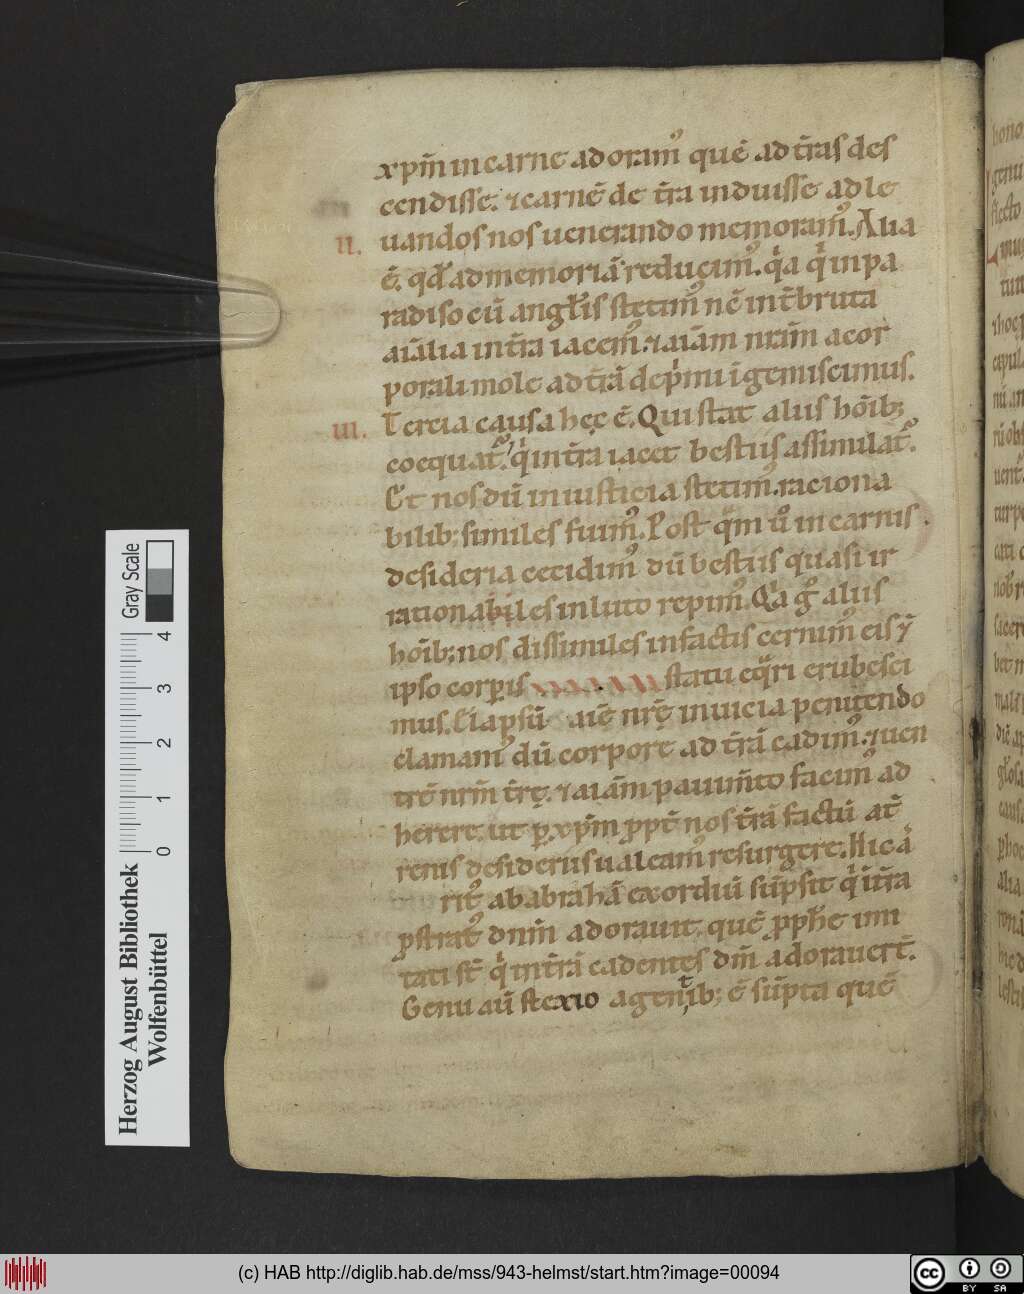 xpm̄ in carne adoram᷒ quē ad t̄ras des
cendisse. ⁊ carnē de t̄ra induisse ad le
II. uandos nos uenerando memoram᷒. Alia
ē. qđ ad memoriā reducim᷒. qͣa qͥ in pa
radiso cū angl̄is stetim᷒ nē int̄ bruta
aiālia in t̄ra iacem᷒. ⁊ aiām nrām a cor
porali mole ad t̄rā dep̄mi īgemiscimus.
III. Tercia causa hęc ē. Qui stat aliis hōib;
coequat᷒. qͥ in t̄ra iacet bestiis assimilat᷒.
Et nos dū in iusticia stetim᷒. raciona
bilib; similes fuim᷒. Postqͣm ū in carnis
desideria cecidim᷒ dū bestiis quasi ir
rationabiles in luto repim᷒. Qͣa g̊ aliis
hōib; nos dissimiles in factis cernim᷒ eis ī
ipso corp̄is statu eqͣri erubesci
mus. Elapsū aīę nrę̄ in uicia penitendo
clamam᷒ dū corpore ad t̄rā cadim᷒. ⁊ uen
trē nrm̄ t̄rę. ⁊ aiām pauim̄to facim᷒ ad
herere. ut p̱ xpm̄ ppt̄ nos t̄rā factū at̄
renis desideriis ualeam᷒ resurgere; Hic a
rit᷒ ab abrahā exordiū sūpsit qͥ ī t̄ra
pstrat᷒ dnm̄ adorauit. quē p̱phē imi
tati st̄ qͥ in t̄rā cadentes dm̄ adorauer̄t.
Genu aū flexio a gentib; ē sūpta quē
Herzog August Bibliothek
Wolfenbüttel
0 1 2 3 4
Gray Scale
(c) HAB http://diglib.hab.de/mss/943-helmst/start.htm?image=00094
cc BY SA